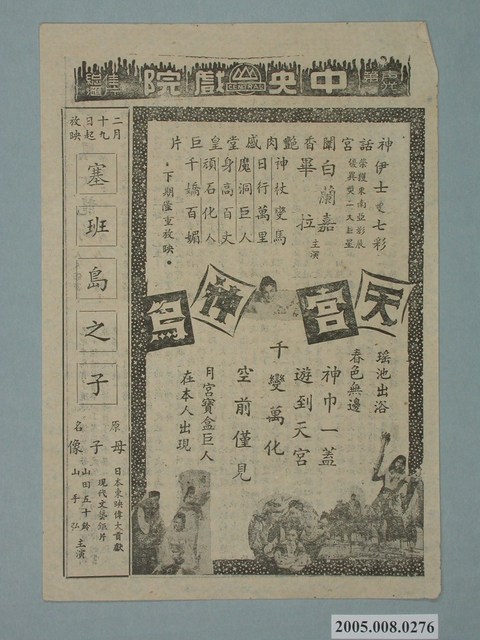 中央戲院
CENTRAL
佳片
神話宮闈香艷肉感堂皇巨片
伊士曼七彩
榮獲東南亞影展
最異獎二大巨星
白蘭嘉
畢拉
主演
神杖變馬
日行萬里
魔洞巨人
身高百丈
頑石化人
千嬌百媚
•下期隆重放映•
天宮神鳥
瑤池出浴
春色無邊
神巾一蓋
遊到天宮
千變萬化
空前僅見
月宮寶盒巨人
在本人出現
二月
十九
日起
放映
塞班島之子
原名
母子像
日本東映偉大貢獻
現代文藝鉅片
山田五十鈴
山手弘
主演
2005.008.0276